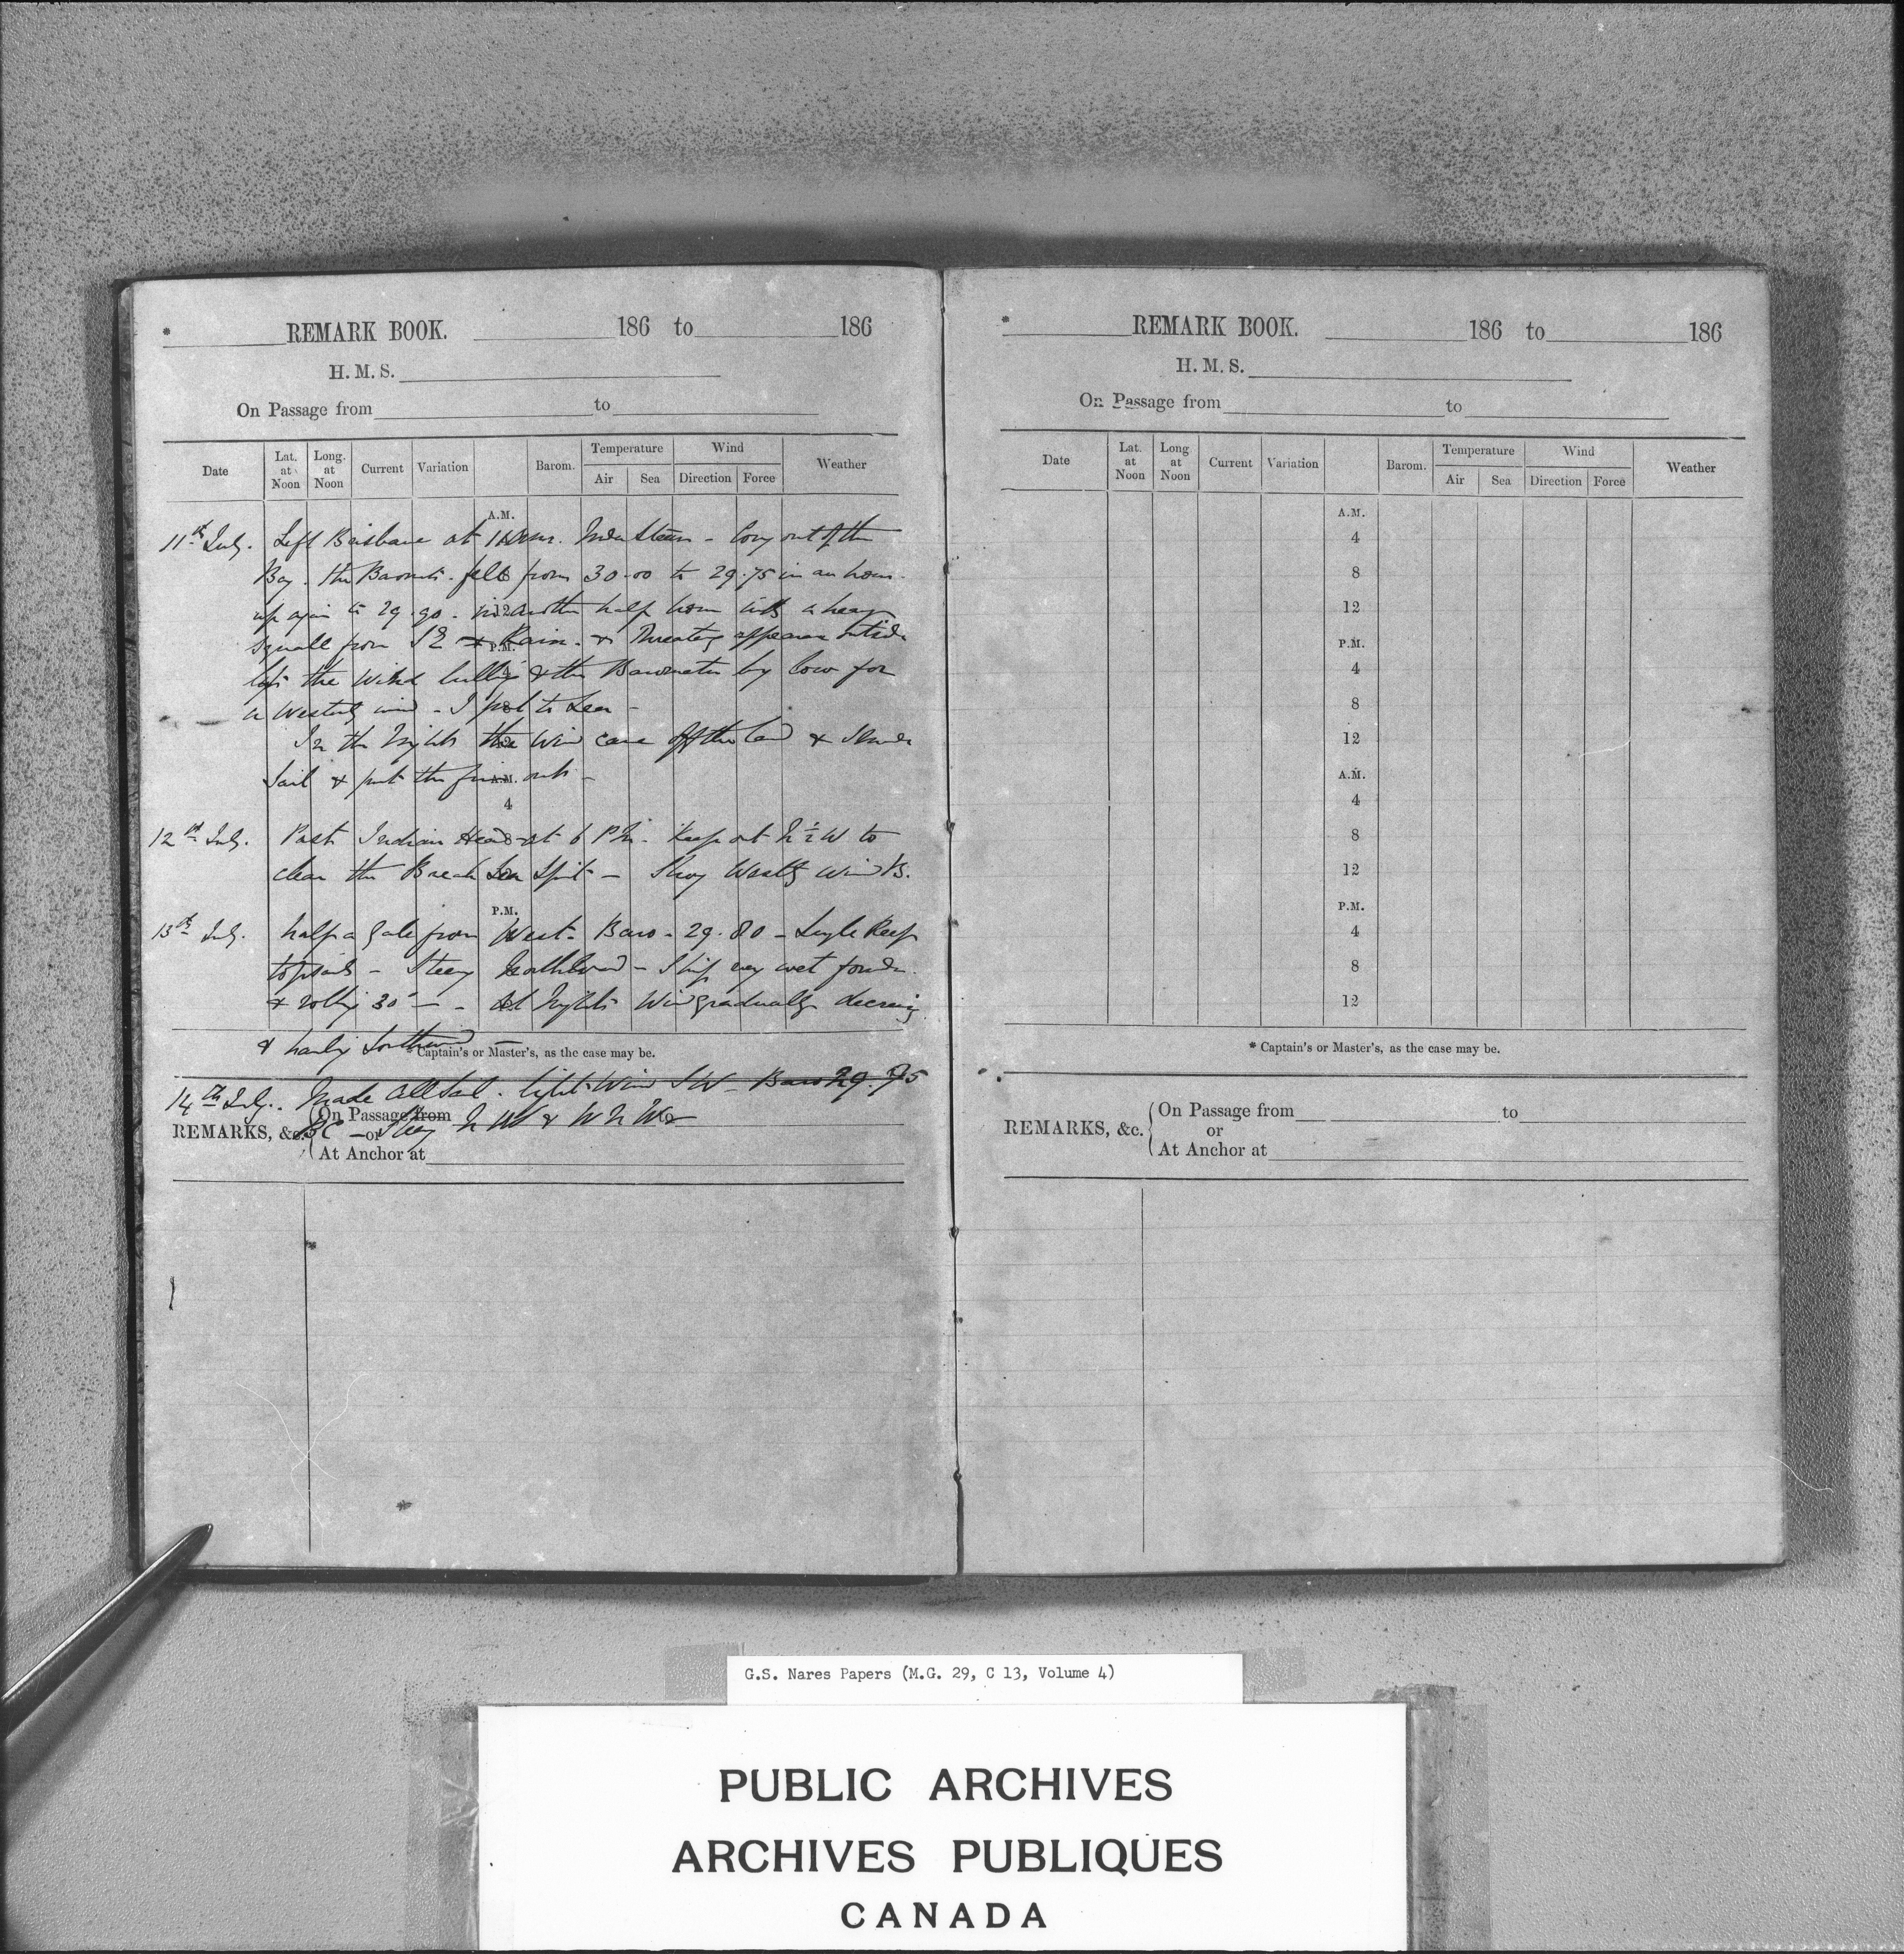 * REMARK BOOK. 186 to 186
H. M. S.
On Passage from to
Date Lat. at Noon Long. at Noon Current Variation Barom. Temperature Air Sea Wind Direction Force Weather
A.M.
11th July. Left Brisbane at Under Steam - out of the
Bay. the Baromtr. fell from 30.00 to 29.75 in an hour.
up again to 29.90 - in another half hour with a heavy
squall from SE & Rain. & appearance outside
P.M.
the Wind & the Barometer low for
a Westerly wind - I put to Sea -
In the night the Wind came off the land &
Sail & put the fires out -
A.M.
4
12th July. Past Indian Head at 6 PM. Kept at N ½ W to
clear the Break Sea Spit - Westly Winds.
P.M.
13th July. half a gale from West - Baro - 29.80 - Single Reef
topsails - Steerg Northward - Ship very wet
& rolling 30° - At Night Wind gradually decreasing
& hauling Southward
* Captain's or Master's, as the case may be.
14th July. Made all Sail. light Wind SW - Baro 29.75
BC - Steerg N W & W N W
REMARKS, &c. On Passage from to
or
At Anchor at
* REMARK BOOK. 186 to 186
H. M. S.
On Passage from to
Date Lat. at Noon Long at Noon Current Variation Barom. Temperature Air Sea Wind Direction Force Weather
A.M.
4
8
12
P.M.
4
8
12
A.M.
4
8
12
P.M.
4
8
12
* Captain's or Master's, as the case may be.
REMARKS, &c. On Passage from to
or
At Anchor at
G.S. Nares Papers (M.G. 29, C 13, Volume 4)
PUBLIC ARCHIVES
ARCHIVES PUBLIQUES
CANADA